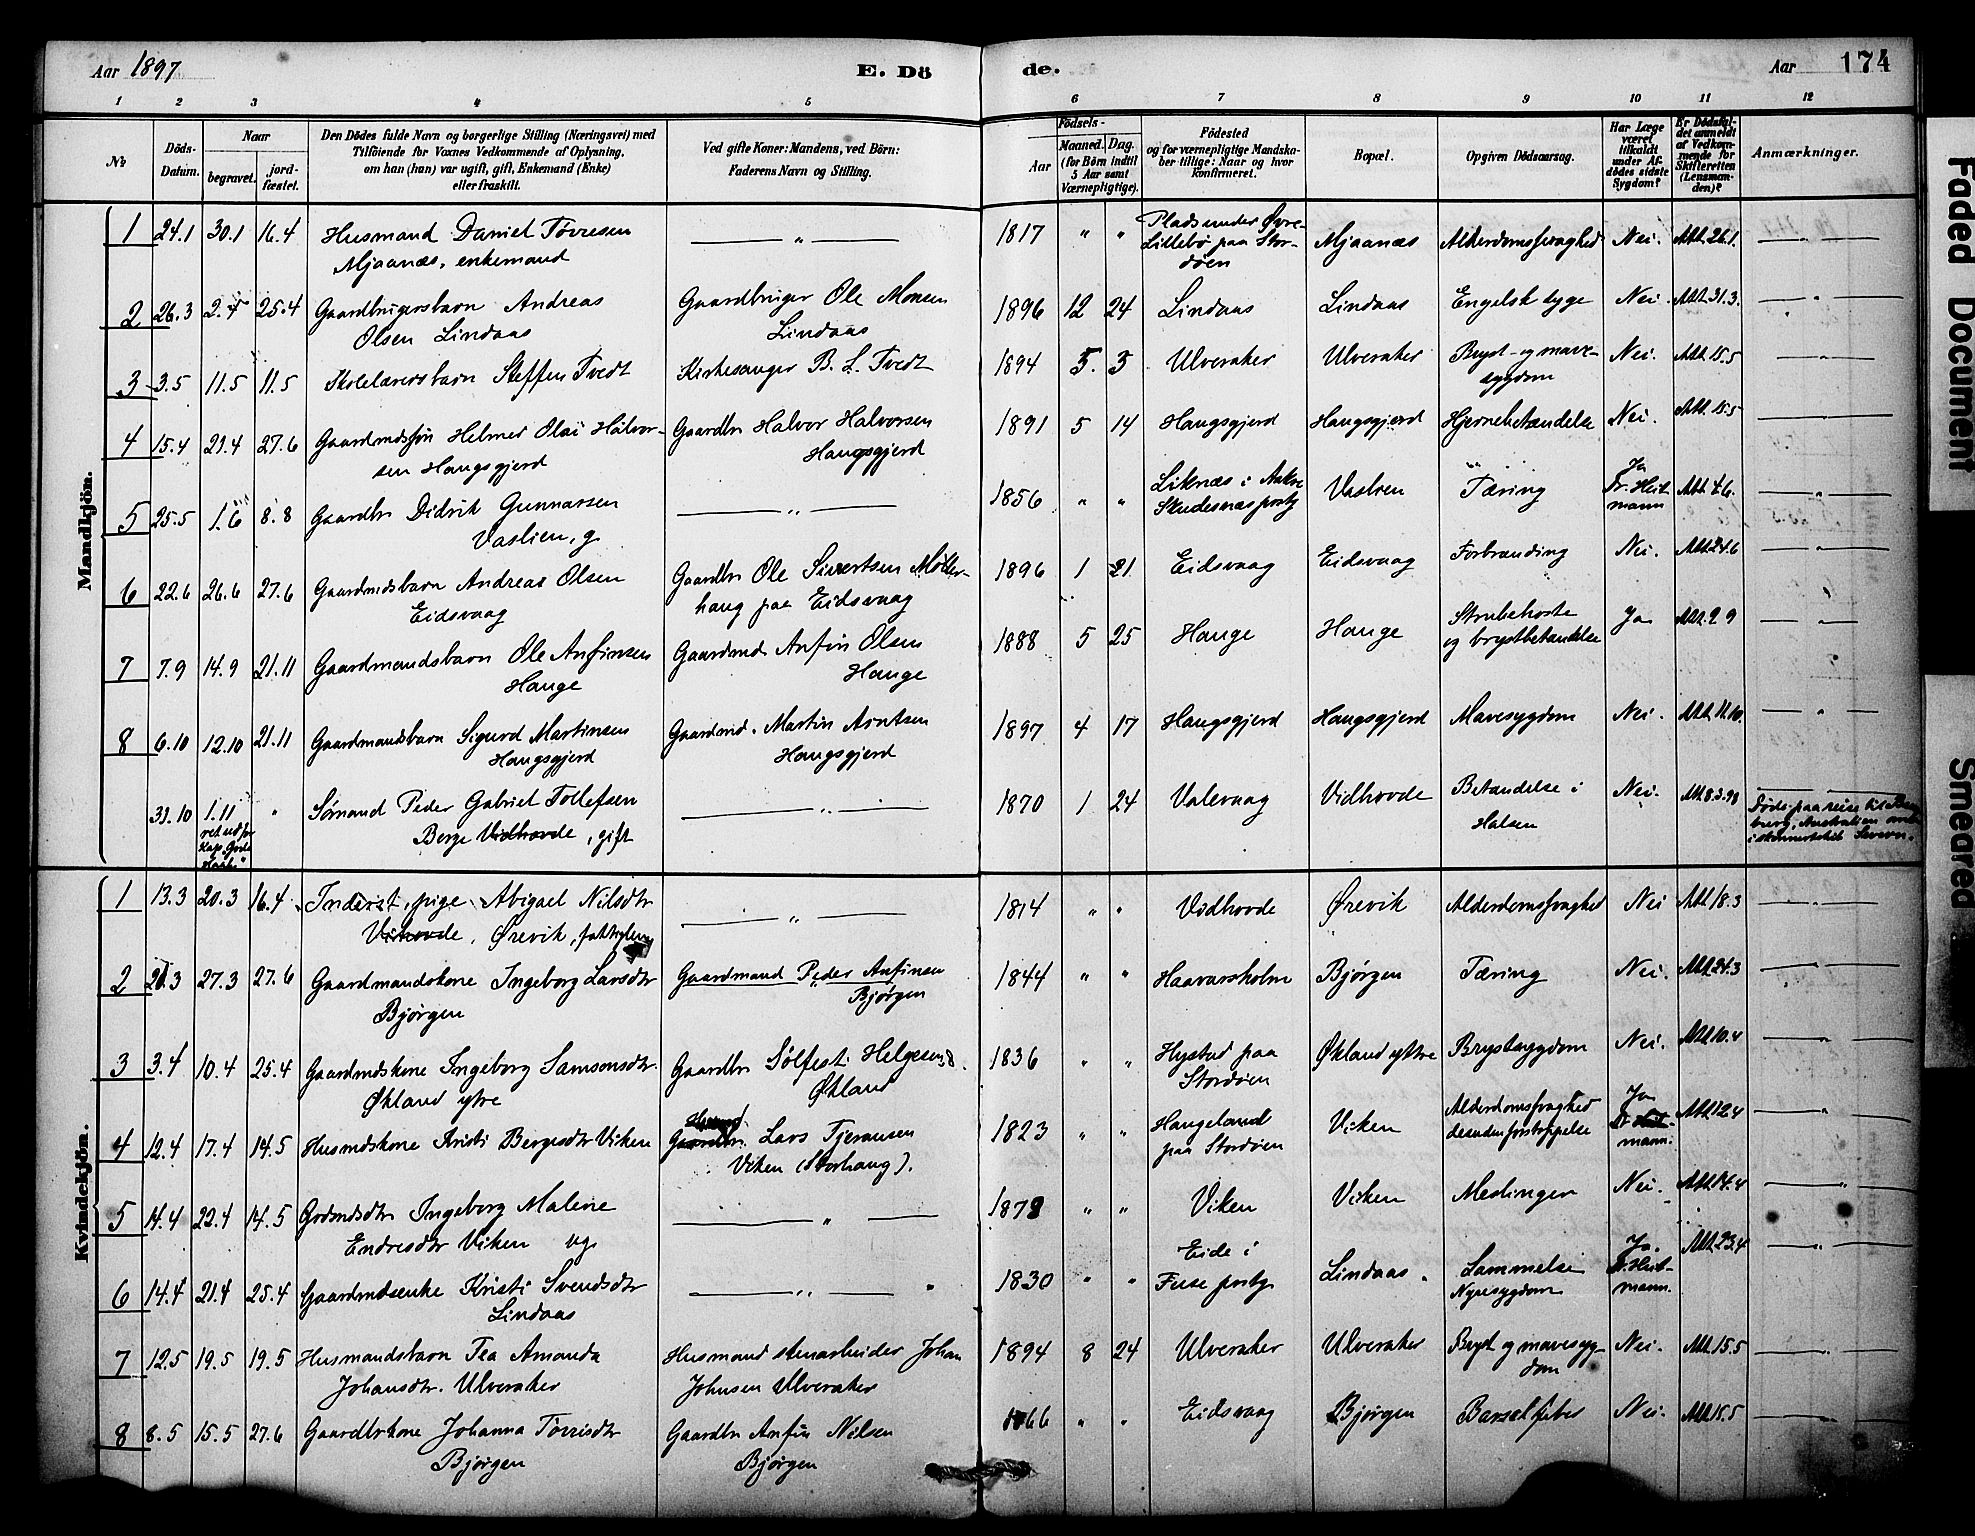 Aar 1897 E. Dö de. Aar 174
1 2 3 4 5 6 7 8 9 10 11 12
№
Döds-
Datum.
Naar
begravet.
jord-
fæstet.
Den Dödes fulde Navn og borgerlige Stilling (Næringsvei) med
Tilföiende for Voxnes Vedkommende af Oplysning,
om han (hun) var ugift, gift, Enkemand (Enke)
eller fraskilt.
Ved gifte Koner: Mandens, ved Börn:
Faderens Navn og Stilling.
Födsels-
Aar
Maaned. Dag.
(for Börn indtil
5 Aar samt
Værnepligtige).
Födested
og for værnepligtige Mandska-
ber tillige: Naar og hvor
konfirmeret.
Bopæl.
Opgiven Dödsaarsag.
Har Læge
været
tilkaldt
under Af-
dödes sidste
Sygdom?
Er Dödsfal-
det anmeldt
af Vedkom-
mende for
Skifteretten
(Lensman-
den)?
Anmærkninger.
Mandkjön.
1 24.1 30.1 16.4 Husmand Daniel Tørresen — " — 1817 " " Plads under Øvre- Mjaanæs Alderdomssvaghed Nei. Att. 26.1. — " —
Mjaanæs, enkemand Lillebø paa Stor-
døen
2 26.3 2.4 25.4 Gaardbrugersbarn Andreas Gaardbruger Ole Monsen 1896 12 24 Lindaas Lindaas Engelsk syge Nei. Att. 31.3. — " —
Olsen Lindaas Lindaas
3 3.5 11.5 11.5 Skolelærersbarn Steffen Tvedt Kirkesanger B. L. Tvedt 1894 5. 3 Ulveraker Ulveraker Bryst- og mave- Nei. Att. 15.5 — " —
sygdom
4 15.4 21.4 27.6 Gaardmdssøn Helmer Olai Halvor- Gaardbr Halvor Halvorsen 1891 5 14 Haugsgjerd Haugsgjerd Hjernebetændelse Nei. Att. 15.5
sen Haugsgjerd Haugsgjerd
5 25.5 1.6 8.8 Gaardbr Didrik Gunnarsen — " — 1856 " " Liknæs i Aakre Vaslien Tæring Ja Att. 4.6. — " —
Vaslien, g Skudesnæs prstgj Dr. Heit-
mann
6 22.6 26.6 27.6 Gaardmdsbarn Andreas Olsen Gaardbr Ole Sivertsen Møller- 1896 1 21 Eidsvaag Eidsvaag Forbrænding Nei. Att. 24.6 — " —
Eidsvaag haug paa Eidsvaag
7 7.9 14.9 21.11 Gaardmandsbarn Ole Anfinsen Gaardmd. Anfin Olsen 1888 5 25 Hauge Hauge Strubehoste Ja Att. 9.9 — " —
Hauge Hauge og brystbetændelse
8 6.10 12.10 21.11 Gaardmandsbarn Sigurd Martinsen Gaardmd. Martin Arntsen 1897 4 17 Haugsgjerd Haugsgjerd Mavesygdom Nei. Att. 11.10. — " —
Haugsgjerd Haugsgjerd
31.10 1.11 " Sømand Peder Gabriel Tollefsen — " — 1870 1 24 Valevaag Vidhovde Betændelse i Nei. Att. 8.3.98
ret udfor Berge Vidhovde, gift Halsen Døde paa reise til
Kap "Gode Australien
Haab"
Kvindekjön.
1 13.3 20.3 16.4 Inderst, pige Abigael Nilsdtr — " — 1814 " " Vidhovde Ørevik Alderdomssvaghed Nei Att. 18.3 — " —
Vihovde, Ørevik, fattiglem
2 20.3 27.3 27.6 Gaardmandskone Ingeborg Larsdtr Gaardmand Peder Anfinsen 1844 " " Haavarsholm Bjørgen Tæring Nei. Att. 24.3 — " —
Bjørgen Bjørgen
3 3.4 10.4 25.4 Gaardmdskone Ingeborg Samsonsdtr. Gaardbr Sølfest Helgesen 1836 " " Hystad paa Økland ytre Brystsygdom Nei. Att. 10.4 — " —
Økland ytre Økland Stordøen
4 12.4 17.4 14.5 Husmdskone Kristi Bergesdtr Viken Gaardbr. Husmd Lars Tjeransen 1823 " " Haugeland Viken Alderdomssvaghed Ja Att. 12.4 — " —
Viken (Storhaug). paa Stordøen desuden forstoppelse Dr. Heit-
mann.
5 14.4 22.4 14.5 Grdmdsdtr Ingeborg Malene — " — 1879 " " Viken Viken Meslinger Nei. Att. 14.4 — " —
Endresdtr Viken ug.
6 14.4 21.4 25.4 Gaardmdsenke Kristi Svendsdtr — " — 1830 " " Eide i Lindaas Lammelse Ja. Att. 23.4 — " —
Lindaas Fuse prstgj Nyresygdom Dr. Heit-
mann.
7 12.5 19.5 19.5 Husmandsbarn Tea Amanda Husmand stenarbeider Johan 1894 8 24 Ulveraker Ulveraker Bryst og mavesyg- Nei. Att. 15.5 — " —
Johansdtr. Ulveraker Johnsen Ulveraker dom
8 8.5 15.5 27.6 Gaardbrkone Johanna Tørrisdtr Gaardbr Anfin Nilsen 1866 " " Eidsvaag Bjørgen Barselfeber Nei. Att. 15.5 — " —
Bjørgen Bjørgen
Faded Document
Smeared